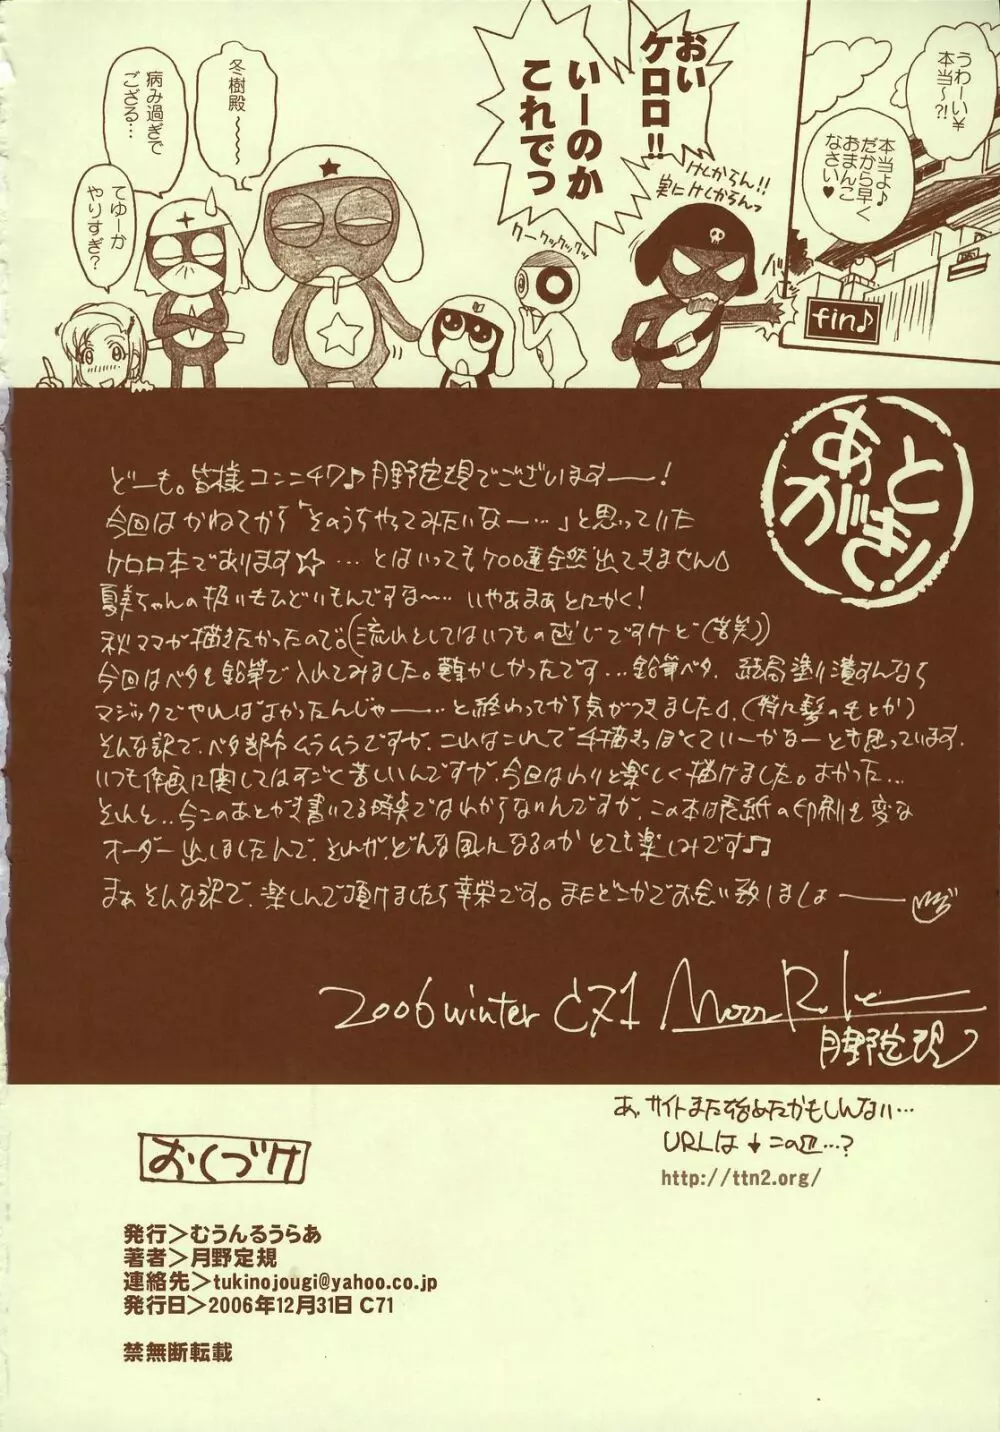 うわーい¥
本当～?!
fin♪
おい
ケロロ!!
いーのか
これでっ
けしからん!!
実にけしからんっ
クークックックッ
冬樹殿～～～
病み過ぎで
ござる…
てゆーか
やりすぎ?
あとがき!
どーも。皆様コンニチワ♪月野定規でございますーー!
今回はかねてから「そのうちやってみたいなー…」と思っていた
ケロロ本であります☆…とはいってもケロロ達全然出てきません
夏美ちゃんの扱いもひどいもんですな〜…いやあまぁとにかく!
秋ママが描きたかったので。(流れとしてはいつもの感じですけど(苦笑))
今回はベタを鉛筆で入れてみました。難かしかったです…鉛筆ベタ、結局塗り潰すんなら
マジックでやればよかったんじゃーー…と終わってから気がつきました、(特に髪のもとか)
そんな訳で、ベタ部分ムラムラですが、これはこれで手描きっぽくていーかなーとも思っています。
いつも作画に関してはすごく苦しいんですが、今回はわりと楽しく描けました。よかった…
それと..今このあとがき書いてる時点ではわからないんですが、この本は表紙の印刷を変な
オーダー出しましたんで、それが、どんな風になるのかとても楽しみです♪♪
まぁそんな訳で、楽しんで頂けましたら幸栄です。またどこかでお会い致しましょーー
2006 winter C71
月野定規
あ、サイトまた始めたかもしんない…
URLは↓この辺…?
http://ttn2.org/
おくづけ
発行＞むうんるうらあ
著者＞月野定規
連絡先＞tukinojougi@yahoo.co.jp
発行日＞2006年12月31日 C71
禁無断転載